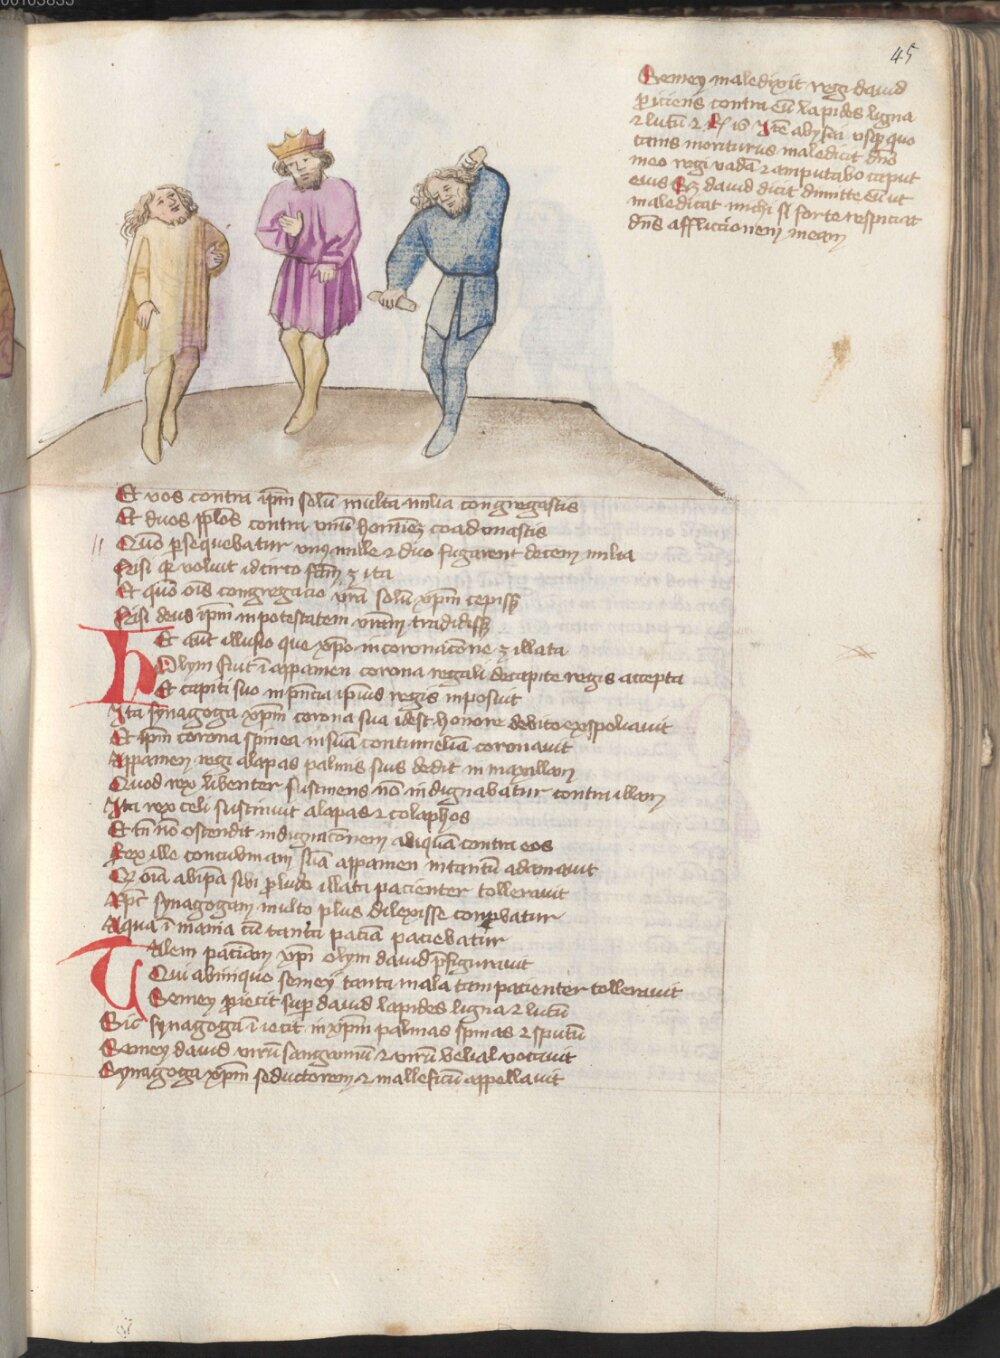 45
Semey maledixit regi dauid
p̱iciens contra eū lapides ligna
⁊ lutū 2 Ṟ 16 Itē abysai usq̱ quo
canis moriturus maledicit dn̄o
meo regi vadā ⁊ amputabo caput
eius Cui dauid dicit dimitte eū ut
maledicat michi si forte respiciat
dn̄s afflictionem meam
Et vos contra ip̄m solū multa milia congregastis
Et duos pp̄los contra vnū hominē coadunastis
Quō p̱sequebatur vnus mille ⁊ duo fugarent decem milia
Nisi q̱ voluit idcirco fc̄m ē ita
Et quō oīs congregacio vr̄a solū xp̄m cepissꝫ
Nisi deus ip̄m in potestatem vestram tradidissꝫ
Hec aut̄ illusio que xp̄o in coronacōne ē illata
Olym fuit ī appamen corona regali de capite regis accepta
Et capiti suo in p̄ncia ip̄ius regis inposuit
Ita synagoga xp̄m corona sua idest honore debito exspoliauit
Et ip̄m corona spinea in suā contumeliā coronauit
Appamen regi alapas palmis suis dedit in maxillam
Quod rex libenter sustinens nō indignabatur contra illam
Ita rex celi sustinuit alapas ⁊ colaphos
Et tn̄ nō ostendit indignacōnem aliquā contra eos
Rex ille concubinam suā appamen intantū adamauit
Qꝫ oīa ab ip̄a sibi p̱ ludo illata pacienter tollerauit
Xp̄c synagogam multo plus dilexisse conp̱batur
A qua ī mania cū tanta paciā paciebatur
Talem paciam xp̄i olym dauid p̄figurauit
Qui ab iniquo semey tanta mala tam pacienter tollerauit
Semey p̱iecit sup̱ dauid lapides ligna ⁊ lutū
Sic synagoga ī iecit in xp̄m palmas spinas ⁊ sputū
Semey dauid virū sangwinū ⁊ virū belial vocauit
Synagoga xp̄m seductorem ⁊ malleficū appellauit